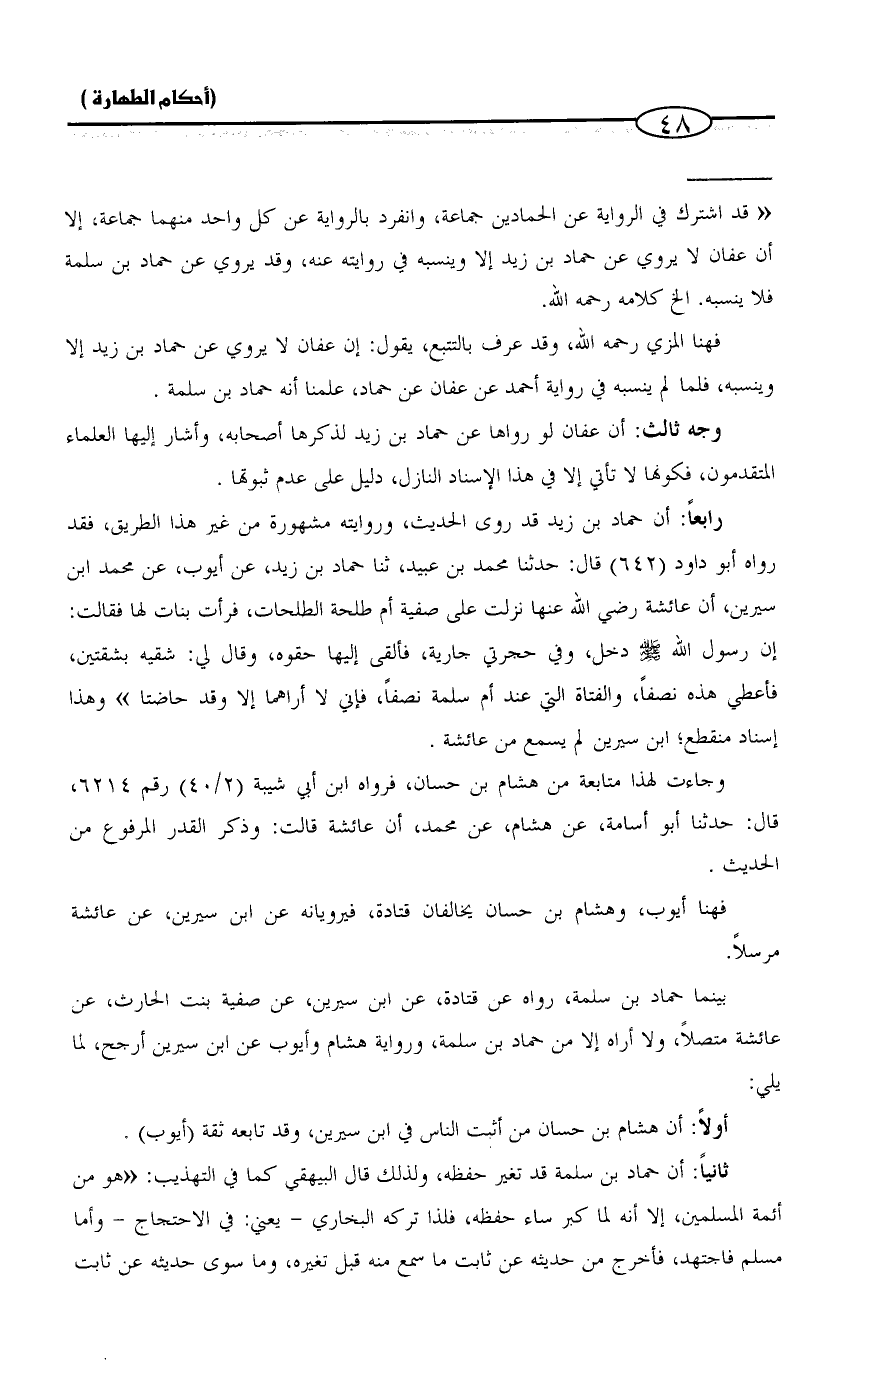 (أحكام الطهارة)
٤٨
« قد اشترك في الرواية عن الحمادين جماعة، وانفرد بالرواية عن كل واحد منهما جماعة، إلا
أن عفان لا يروي عن حماد بن زيد إلا وينسبه في روايته عنه، وقد يروي عن حماد بن سلمة
فلا ينسبه. الخ كلامه رحمه الله.
فهنا المزي رحمه الله، وقد عرف بالتتبع، يقول: إن عفان لا يروي عن حماد بن زيد إلا
وينسبه، فلما لم ينسبه في رواية أحمد عن عفان عن حماد، علمنا أنه حماد بن سلمة .
وجه ثالث: أن عفان لو رواها عن حماد بن زيد لذكرها أصحابه، وأشار إليها العلماء
المتقدمون، فكونها لا تأتي إلا في هذا الإسناد النازل، دليل على عدم ثبوتها .
رابعاً: أن حماد بن زيد قد روى الحديث، وروايته مشهورة من غير هذا الطريق، فقد
رواه أبو داود (٦٤٢) قال: حدثنا محمد بن عبيد، ثنا حماد بن زيد، عن أيوب، عن محمد ابن
سيرين، أن عائشة رضي الله عنها نزلت على صفية أم طلحة الطلحات، فرأت بنات لها فقالت:
إن رسول الله ﷺ دخل، وفي حجرتي جارية، فألقى إليها حقوه، وقال لي: شقيه بشقتين،
فأعطي هذه نصفاً، والفتاة التي عند أم سلمة نصفاً، فإني لا أراهما إلا وقد حاضتا » وهذا
إسناد منقطع؛ ابن سيرين لم يسمع من عائشة .
وجاءت لهذا متابعة من هشام بن حسان، فرواه ابن أبي شيبة (٤٠/٢) رقم ٦٢١٤،
قال: حدثنا أبو أسامة، عن هشام، عن محمد، أن عائشة قالت: وذكر القدر المرفوع من
الحديث .
فهنا أيوب، وهشام بن حسان يخالفان قتادة، فيرويانه عن ابن سيرين، عن عائشة
مرسلاً.
بينما حماد بن سلمة، رواه عن قتادة، عن ابن سيرين، عن صفية بنت الحارث، عن
عائشة متصلاً، ولا أراه إلا من حماد بن سلمة، ورواية هشام وأيوب عن ابن سيرين أرجح، لما
يلي:
أولاً: أن هشام بن حسان من أثبت الناس في ابن سيرين، وقد تابعه ثقة (أيوب) .
ثانياً: أن حماد بن سلمة قد تغير حفظه، ولذلك قال البيهقي كما في التهذيب: «هو من
أئمة المسلمين، إلا أنه لما كبر ساء حفظه، فلذا تركه البخاري - يعني: في الاحتجاج - وأما
مسلم فاجتهد، فأخرج من حديثه عن ثابت ما سمع منه قبل تغيره، وما سوى حديثه عن ثابت